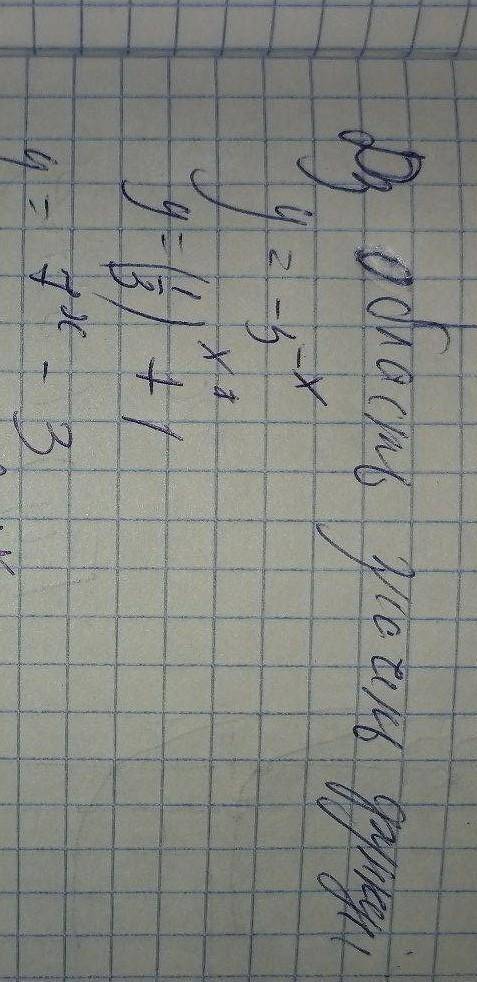 Область значень функції
y = -5^-x
y = (1/3)^x + 1
y = 7^x - 3